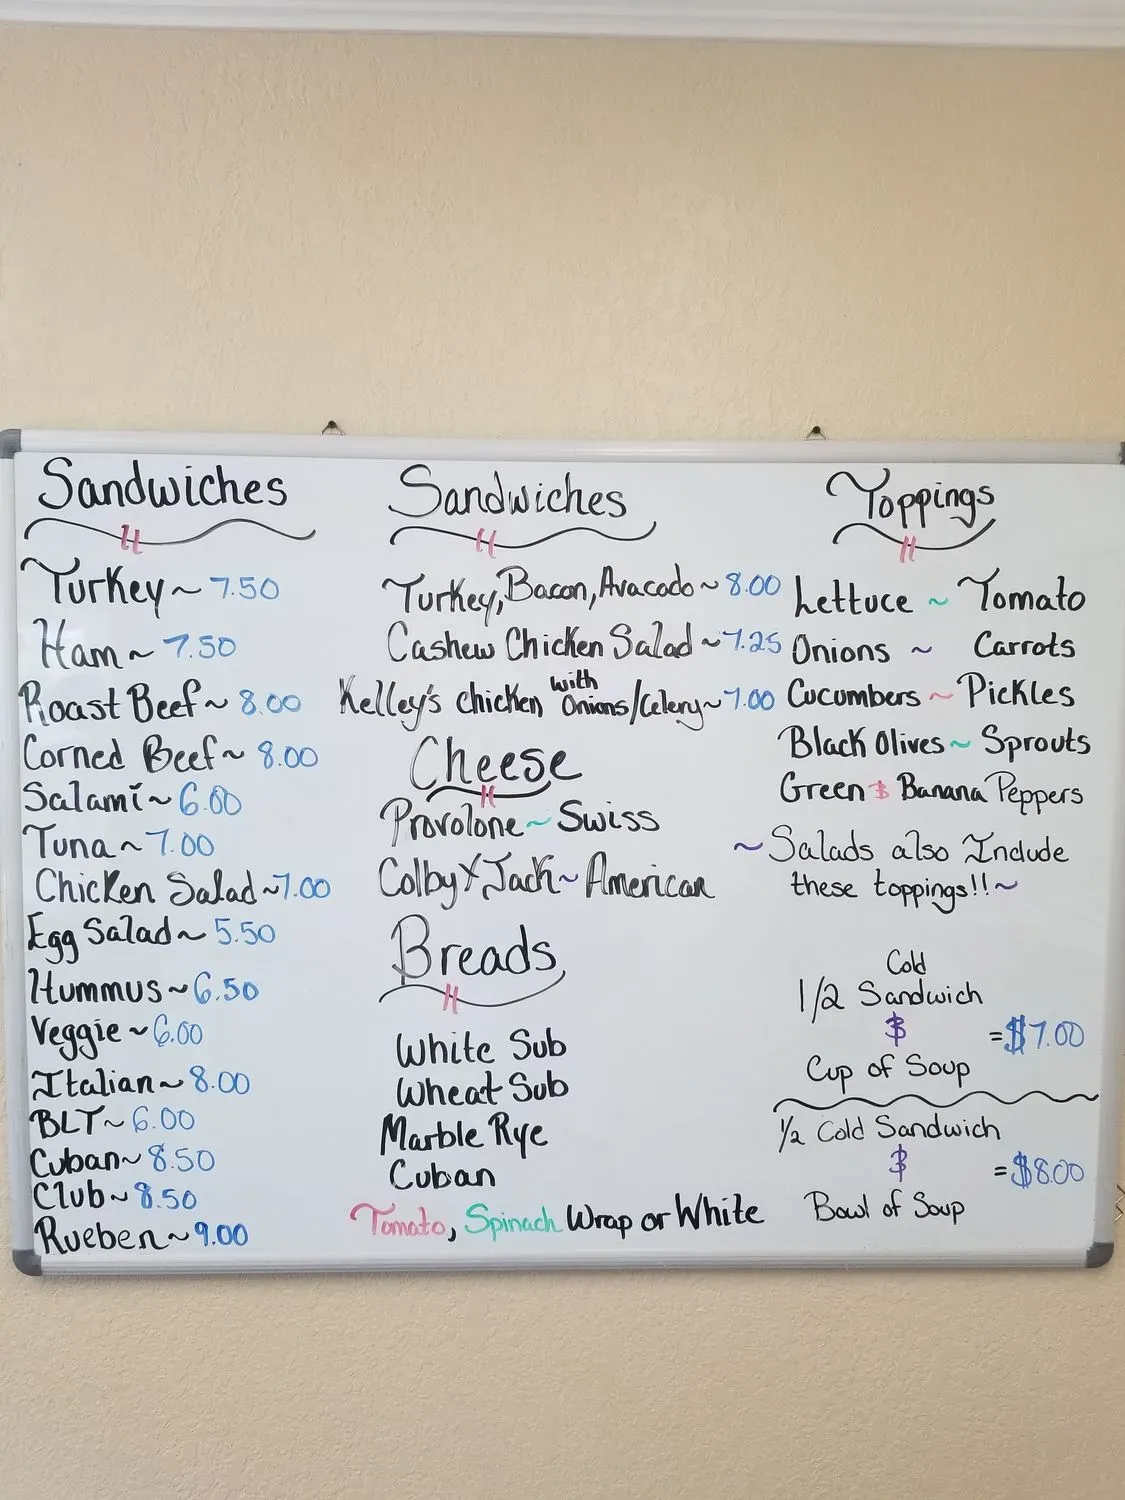 Sandwiches
Turkey ~ 7.50
Ham ~ 7.50
Roast Beef ~ 8.00
Corned Beef ~ 8.00
Salami ~ 6.00
Tuna ~ 7.00
Chicken Salad ~ 7.00
Egg Salad ~ 5.50
Hummus ~ 6.50
Veggie ~ 6.00
Italian ~ 8.00
BLT ~ 6.00
Cuban ~ 8.50
Club ~ 8.50
Rueben ~ 9.00
Sandwiches
Turkey, Bacon, Avacado ~ 8.00
Cashew Chicken Salad ~ 7.25
Kelley's chicken with Onions/Celery ~ 7.00
Cheese
Provolone ~ Swiss
Colby Jack ~ American
Breads
White Sub
Wheat Sub
Marble Rye
Cuban
Tomato, Spinach Wrap or White
Toppings
Lettuce ~ Tomato
Onions ~ Carrots
Cucumbers ~ Pickles
Black Olives ~ Sprouts
Green & Banana Peppers
~ Salads also Include
these toppings!! ~
Cold
1/2 Sandwich
& = $7.00
Cup of Soup
1/2 Cold Sandwich
& = $8.00
Bowl of Soup